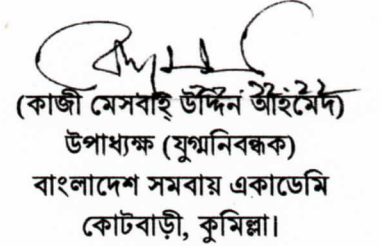 (কাজী মেসবাহ্ উদ্দিন আহমেদ)
উপাধ্যক্ষ (যুগ্মনিবন্ধক)
বাংলাদেশ সমবায় একাডেমি
কোটবাড়ী, কুমিল্লা।